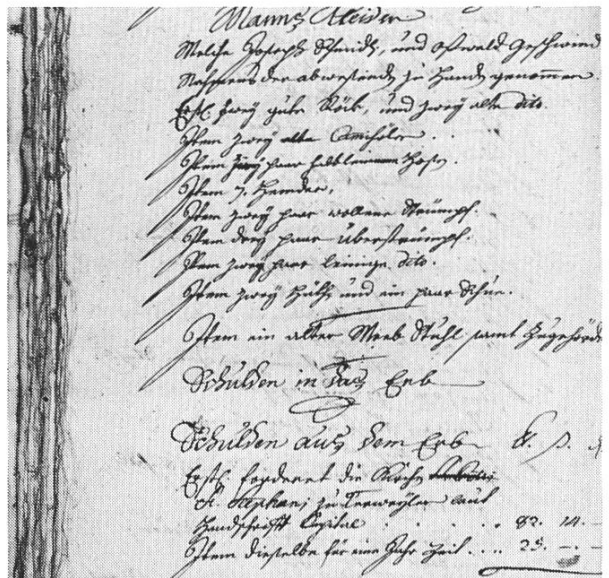 Manns Kleider
Welche Joseph Schmidt, und Oswald Geschwind
Nahmens der abwesend zu Handen genommen.
Erstl. zwey gute Röck, und zwey alte dito.
Item zwey alte Camisohlen
Item zwey paar Hosen.
Item 7. Hemder,
Item zwey paar wollene Strümpf.
Item drey paar überstrümpf.
Item zwey paar leinige dito.
Item zwey Hüth und ein paar Schue.
Item ein alter Web Stuhl samt Zugehörde
Schulden in das Erb
Schulden aus dem Erb lb. ß. d.
Erstl. forderet die Kirche
St. Stephani zu Terweyler laut
Handschrifft Capital . . . . . 82. 14. –
Item dieselbe für ein Jahr Zeit . . . 25. – –